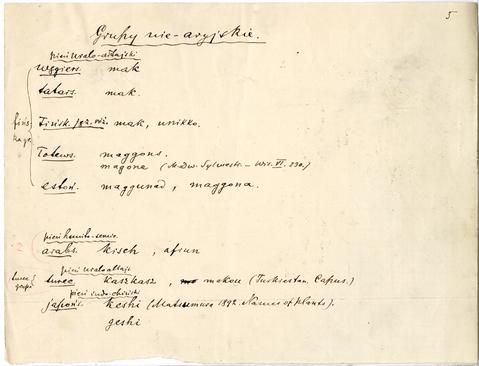 5
Grupy nie-aryjskie.
pień uralo-ałtajski
węgiers. mak
tatars. mak.
Fińsk. mak, unikko.
Łotews. maggons.
magone (M. Dw. Sylwestr. – Wis. VI. 230.)
estoń. maggunad, maggona.
pień hamito-semic.
arabs. kisch, afiun
pień uraloałtajs.
turec. kaszkasz, makou (Turkiestan. Capus.)
pień indo-chiński
japońs. keshi (Matsumura 1892. Names of plants).
geshi